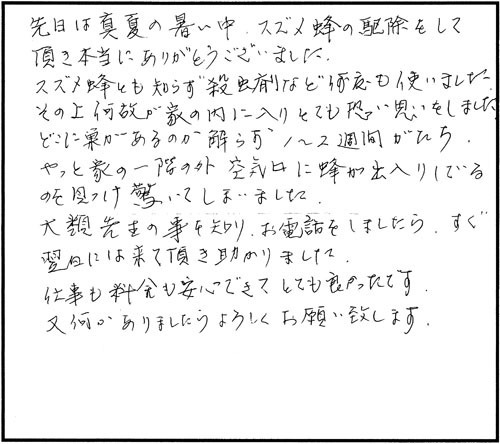 先日は真夏の暑い中、スズメ蜂の駆除をして
頂き本当にありがとうございました。
スズメ蜂とも知らず殺虫剤など何度も使いました。
その上何故か家の内に入りとても恐い思いをしました
どこに巣があるのか解らず1〜2週間がたち、
やっと家の一階の外 空気口に蜂が出入りしている
のを見つけ驚いてしまいました。
大類先生の事を知り、お電話をしましたら、すぐ
翌日には来て頂き助かりました。
仕事も料金も安心できてとても良かったです。
又何かありましたらよろしくお願い致します。